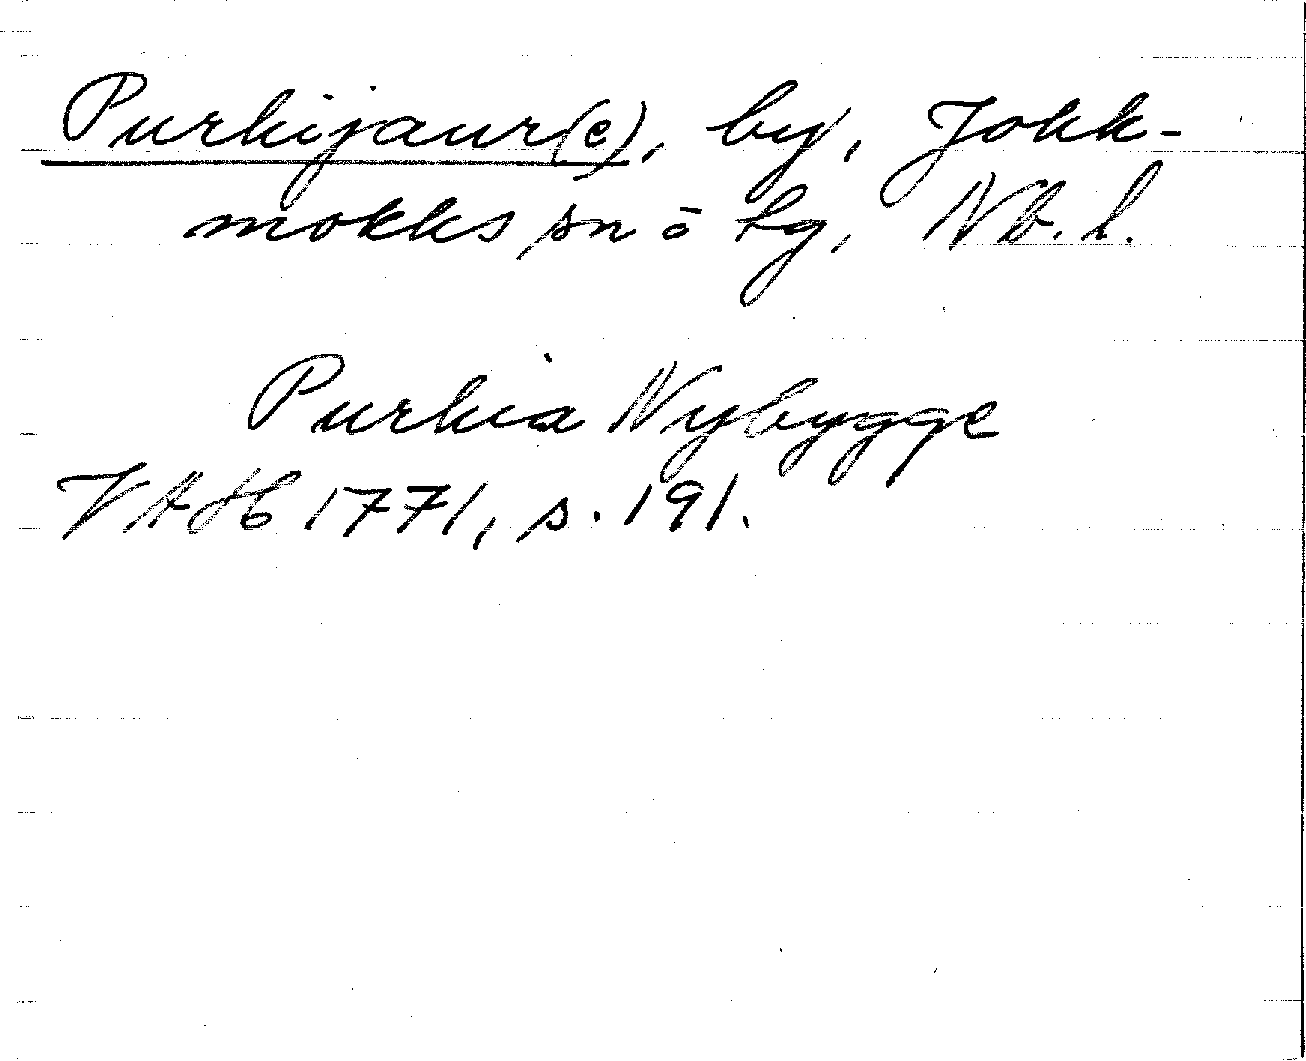 Purkijaur(e), by, Jokk-
mokks sn o tg, Nb. l.
Purkia Nybygge
VAH 1771, s. 191.